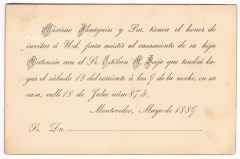 Máximo Eluiquin y Sra. tienen el honor de
invitar á Ud. para asistir al casamiento de su hija
Hortensia con el Sr. Estéban R. Rojo que tendrá lu-
gar el sábado 18 del corriente á las 9 de la noche, en su
casa, calle 18 de Julio núm. 874.
Montevideo, Mayo de 1889
Sr. Dn.